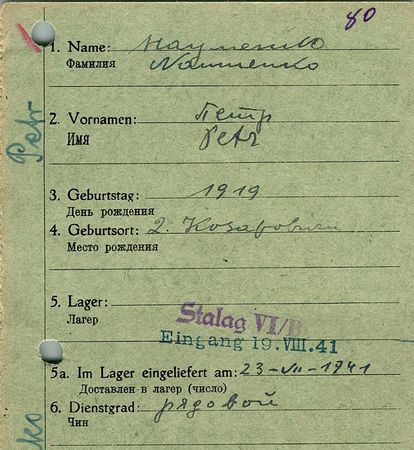 80
1. Name: Науменко
Фамилия Naumenko
2. Vornamen: Петр
Имя Petr
3. Geburtstag: 1919
День рождения
4. Geburtsort: 2. Козаровичи
Место рождения
5. Lager:
Лагер
Stalag VI/B
Eingang 19. VIII. 41
5a. Im Lager eingeliefert am: 23-VII-1941
Доставлен в лагер (число)
6. Dienstgrad: рядовой
Чин
Petr
ko